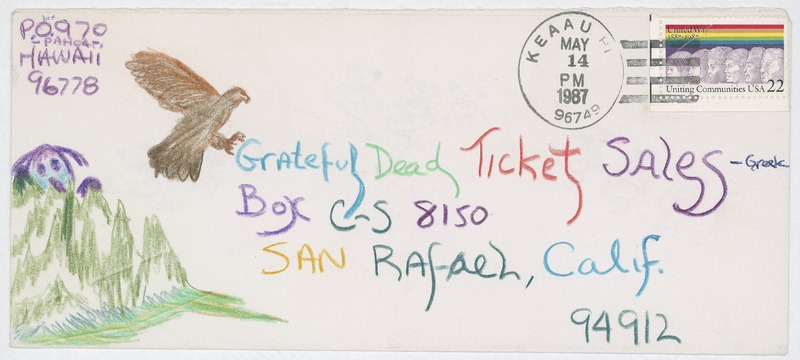 P.O. box 970
-PAHOA-
HAWAII
96778
KEAAU HI
MAY
14
PM
1987
96749
United Way
1887-1987
Uniting Communities USA 22
Grateful Dead Ticket Sales -Greek
Box C-S 8150
SAN RAfAEL, Calif.
94912